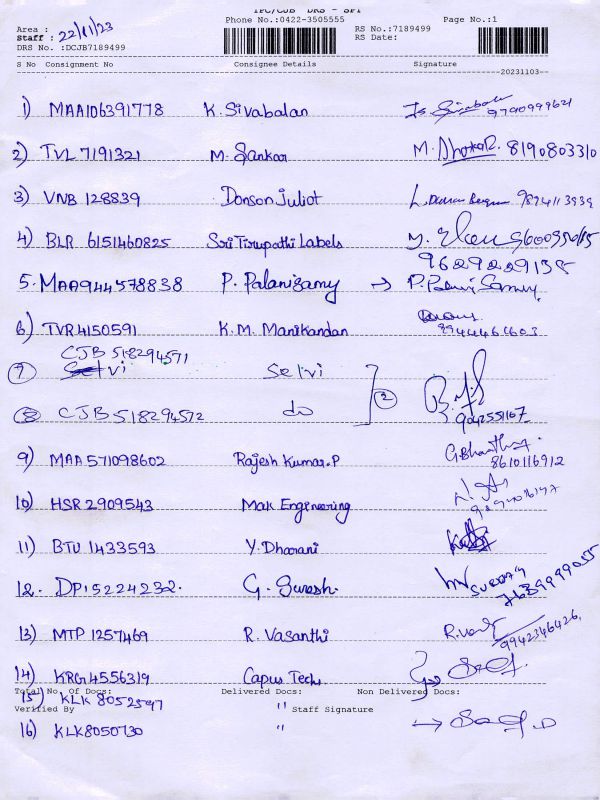 TPC/CJB DRS - SPT
Phone No.:0422-3505555 Page No.:1
Area : RS No.:7189499
Staff : 22/11/23 RS Date:
DRS No. :DCJB7189499
S No Consignment No Consignee Details Signature
20231103
1) MAA106391778 K. Sivabalan 9790999621
2) TVL 7191321 M. Sankar M. 8190803310
3) VNB 128839 Donson Juliot 9894113939
4) BLR 6151460825 Sri Tirupathi Labels
9629229158
5. MAA944578838 P. Palanisamy → P. Palani Samy
6) TVR4150591 K.M. Manikandan
9944461603
CJB 518294571
7 Selvi Selvi 2
8 CJB 518294572 do
9) MAA 571098602 Rajesh Kumar.P G. Bharathi
8610116912
10) HSR 2909543 Mak Engineering
11) BTU 1433593 Y. Dharani
12. DPI5224232. G. Suresh. Suresh
7639999055
13) MTP 1257469 R. Vasanthi R.
9942346426
14) KRG4556319 Capus Tech
Total No. Of Docs: Delivered Docs: Non Delivered Docs:
15) KLK 8052597 "
Verified By Staff Signature
16) KLK8050730 " →